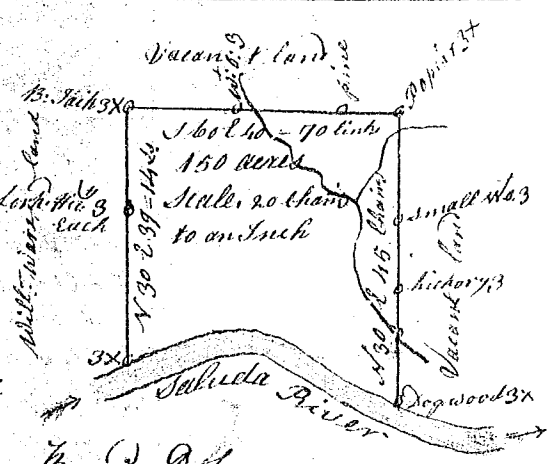 Vacant land
W.O. 3
pine
Poplar 3X
B. Jack 3X
S 60 E 40 - 70 links
150 acres
Scale, 20 Chain
to an Inch
3
Each
Will: Ware land
N 30 E 39 = 14 Ls
N 30 E 45 Chain
small W.O. 3
hickory 3
Vacant land
3X
Saluda River
Dogwood 3X